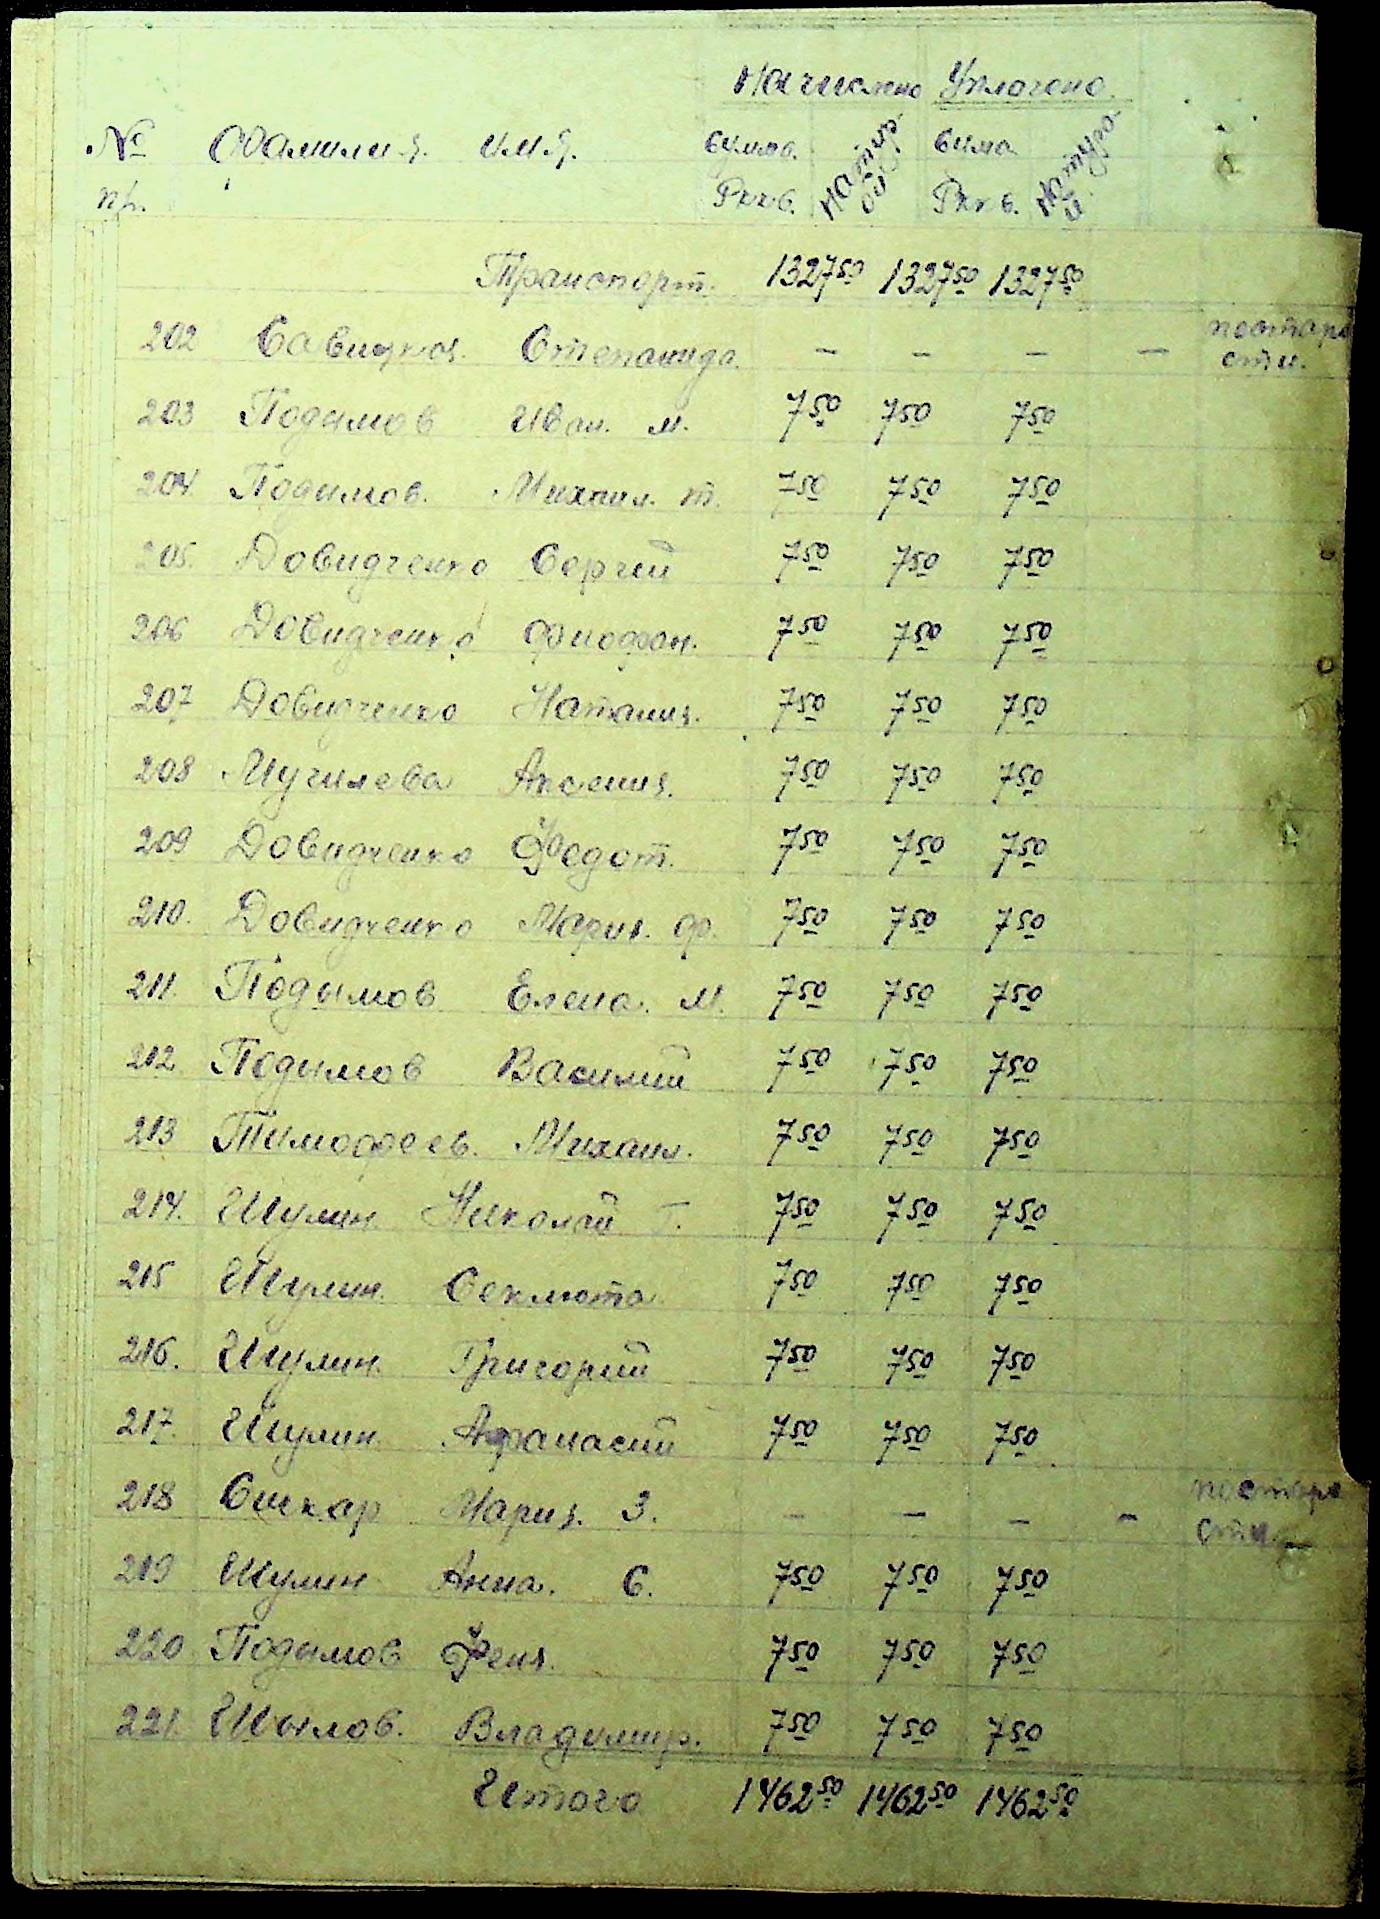 Начислено Уплочено
№ Фамилия. имя. Билов. Натур- Била Натуро-
пр. Рккв. ой Рккв. й
Транспорт. 1327 50 1327 50 1327 50
202 Савицкая. Степанида. – – – – постаро
сти.
203 Подымов Иван. м. 7 50 7 50 7 50
204. Подымов. Михаил. т. 7 50 7 50 7 50
205. Довидченко Сергий 7 50 7 50 7 50
206 Довидченко Фиофан. 7 50 7 50 7 50
207 Довидченко Наталия. 7 50 7 50 7 50
208 Мучилева Аксения. 7 50 7 50 7 50
209 Довидченко Федот. 7 50 7 50 7 50
210. Довидченко Мария. ф. 7 50 7 50 7 50
211. Подымов Елена. М. 7 50 7 50 7 50
212 Подымов Василий 7 50 7 50 7 50
213 Тимофеев. Михаил. 7 50 7 50 7 50
214. Шулин Николай Г. 7 50 7 50 7 50
215 Шулин. Секлюта 7 50 7 50 7 50
216. Шулин. Григорий 7 50 7 50 7 50
217. Шулин Афанасий 7 50 7 50 7 50
218 Сискар Мария. З. – – – – постаро
сти.
219 Шулин Анна. С. 7 50 7 50 7 50
220 Подымов Феня. 7 50 7 50 7 50
221. Шылов. Владимир. 7 50 7 50 7 50
Итого 1462 50 1462 50 1462 50